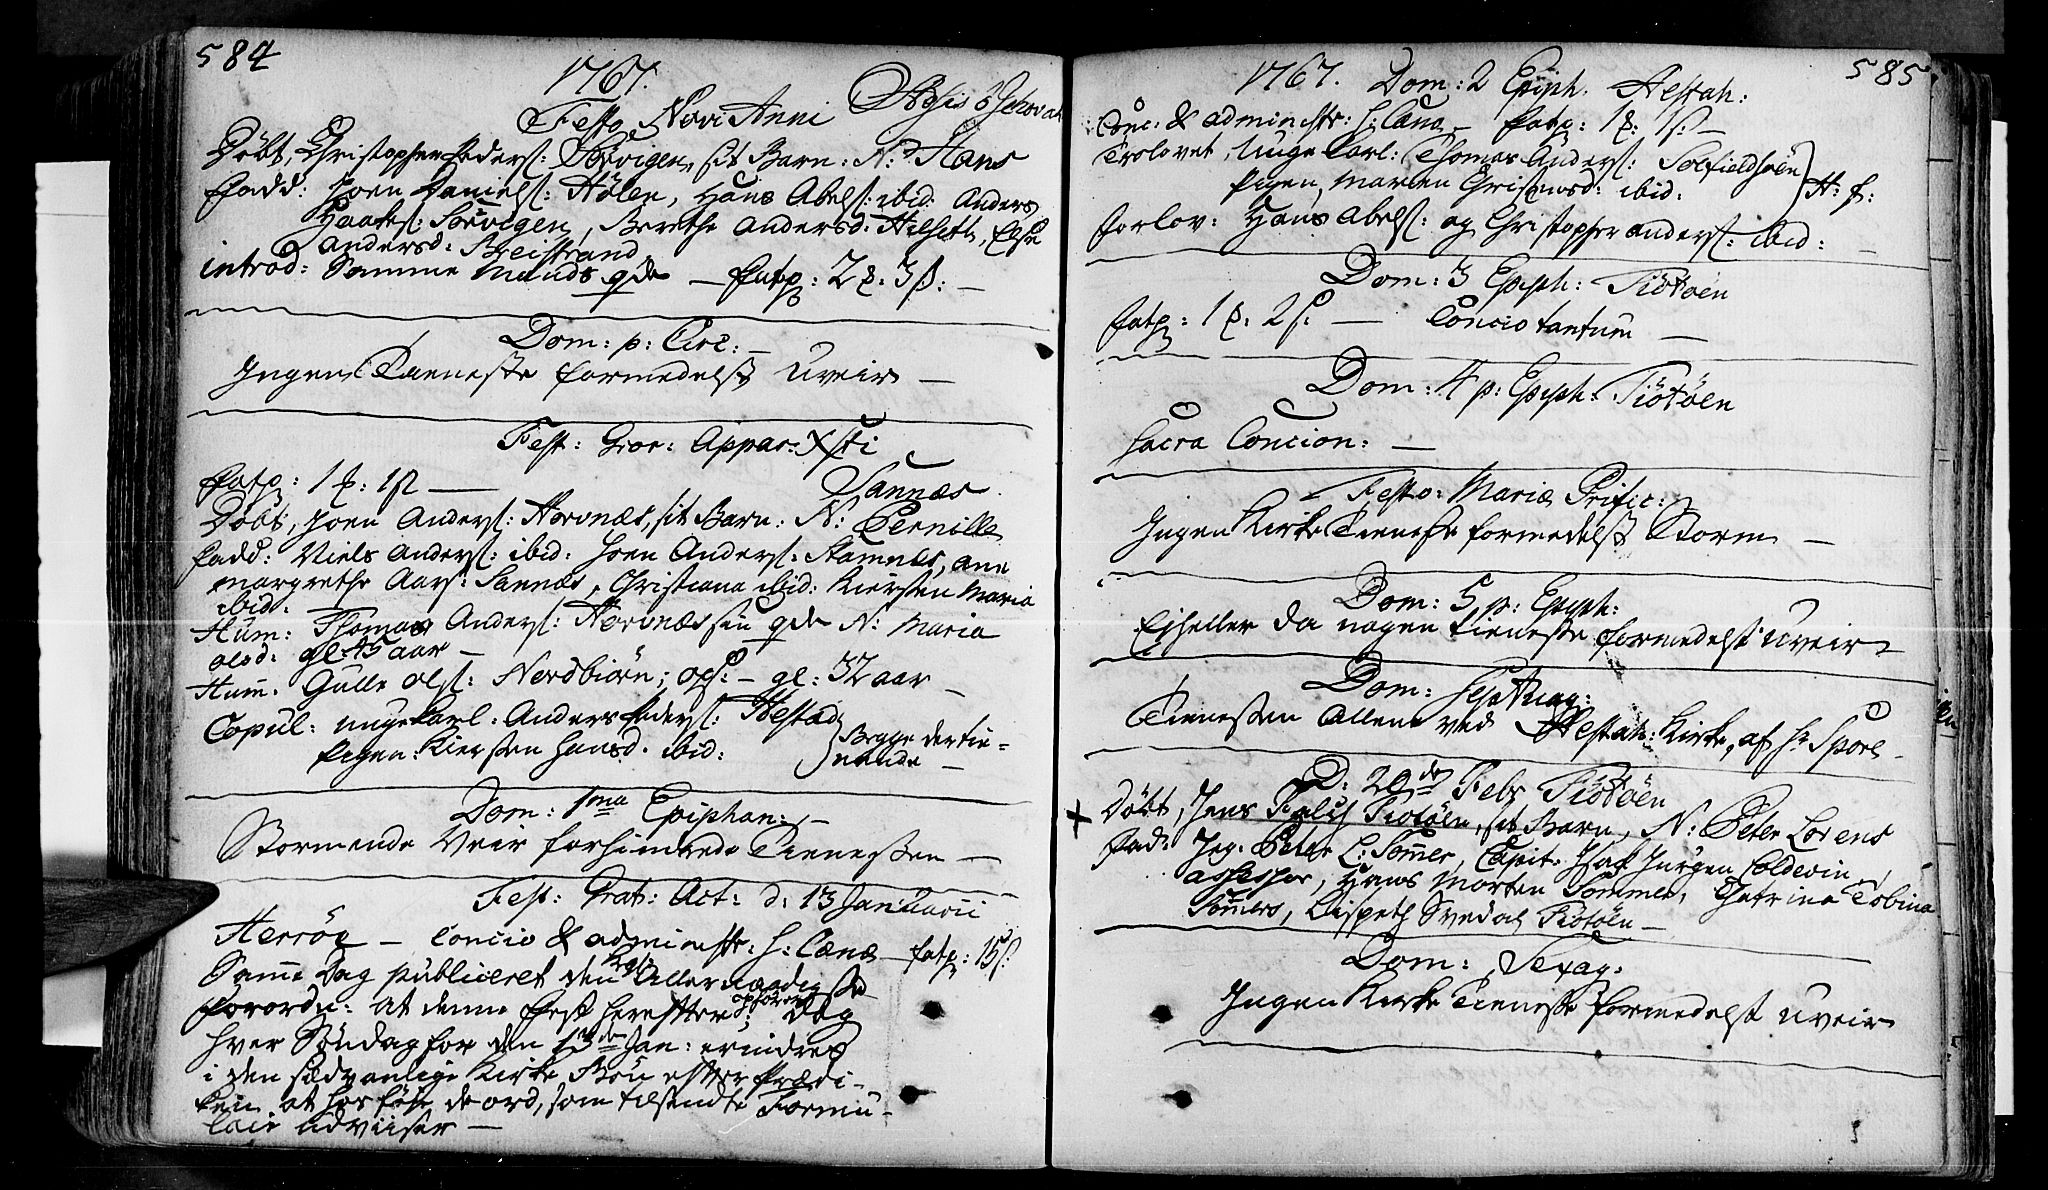 584
1767.
Festo Novi Anni
Döbt, Christopher Peders: Sörvigen, sit Barn: N: Hans
Fadd: Joen Daniels: Hölen, Hans Abels: ibid: Anders
Haags: Sörvigen, Berethe Andersd: Hilseth, Else
Andersd: Breistrand
introd: Samme Mands qde — Fatp: 2 f: 3 s: —
Dom: p: Circ: —
Ingen Tieneste formedelst Uveir —
Fest: Gror: Appar: Xsti
Fatp: 1 f: 1 s — Sannæs
Döbt, Joen Anders: Horvnæs, sit Barn: N: Pernille
Fadd: Niels Anders: ibid: Joen Anders: Stamnes, Ane
Margrethe Aars: Sannæs, Christiana ibid: Kiersten Maria
ibid.
Hum: Thomas Anders: Horvnæs sin qde N: Maria
Olsd: gl: 45 aar —
Hum. Gulle Ols: Nordbiörn; gl: 32 aar —
Copul: unge Karl: Anders Peders: Hestad
Pigen: Kiersten Hansd: ibid: Begge dertie-
nende —
Dom: 1ma Epiphan: —
Stormende Veir forhindrede Tienesten —
Fest: Grat: Act: d: 13 Januarii
Herröe — Concio & administr: H: Cænæ — Fatp: 15 s:
Samme Dag publiceret den Kgl: Allernaadigste
forordn: at denne Fest herefter ophörer; Dog
hver Söndag for den 13de Jan: erindres
i den sædvanlige Kirke Bön efter Prædi-
ken at de ord, som tilsendte Formu-
lair udviiser —
1767. Dom: 2 Epiph. Alstah: 585.
Conc: & administr: S: Cæna — Fatp: 1 f: 1 s: —
Trolovet, Unge Karl: Thomas Anders: Solfieldsöen
Pigen, Maren Grisensd: ibid: H: f:
Forlov: Hans Abels: og Christopher Anders: ibid: —
Dom: 3 Epiph: Tiötöen
Fatp: 1 f: 2 s: — Concio tantum —
Dom: 4 p: Epiph: Tiötöen
Sacra Concion: —
Festo: Mariæ Prific:
Ingen Kirke Tieneste formedelst Storm —
Dom: 5 p: Epiph:
Ejheller da nogen Tieneste formedelst Uveir —
Dom: Septuag:
Tienesten Allene ved Alstah: Kirke, af Hr Spörl —
D: 20de Febr Tiötöen
+ Döbt, Jens Falch Tiötöen, sit Barn, N: Peter Lorens
Fad: Jeg, Peter L: Sommer, Capit: Isach Jürgen Coldevin,
Assessor, Hans Morten Sommer, Catrina Tobina
Somers, Lispeth Svedal Tiötöen —
Dom: Sexag:
Ingen Kirke Tieneste formedelst Uveir